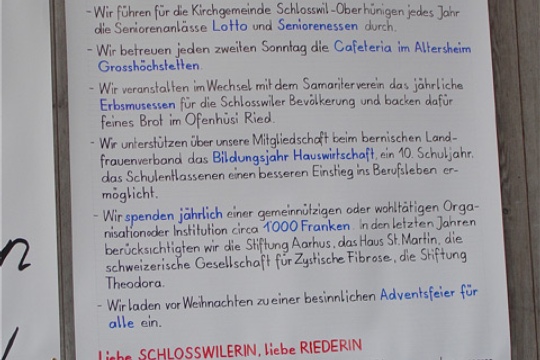 - Wir führen für die Kirchgemeinde Schlosswil-Oberhünigen jedes Jahr
die Seniorenanlässe Lotto und Seniorenessen durch.
- Wir betreuen jeden zweiten Sonntag die Cafeteria im Altersheim
Grosshöchstetten.
- Wir veranstalten im Wechsel mit dem Samariterverein das jährliche
Erbsmusessen für die Schlosswiler Bevölkerung und backen dafür
feines Brot im Ofenhüsi Ried.
- Wir unterstützen über unsere Mitgliedschaft beim bernischen Land-
frauenverband das Bildungsjahr Hauswirtschaft, ein 10. Schuljahr,
das Schulentlassenen einen besseren Einstieg ins Berufsleben er-
möglicht.
- Wir spenden jährlich einer gemeinnützigen oder wohltätigen Orga-
nisation oder Institution circa 1'000 Franken. In den letzten Jahren
berücksichtigten wir die Stiftung Aarhus, das Haus St. Martin, die
schweizerische Gesellschaft für Zystische Fibrose, die Stiftung
Theodora.
- Wir laden vor Weihnachten zu einer besinnlichen Adventsfeier für
alle ein.
Liebe SCHLOSSWILERIN, liebe RIEDERIN